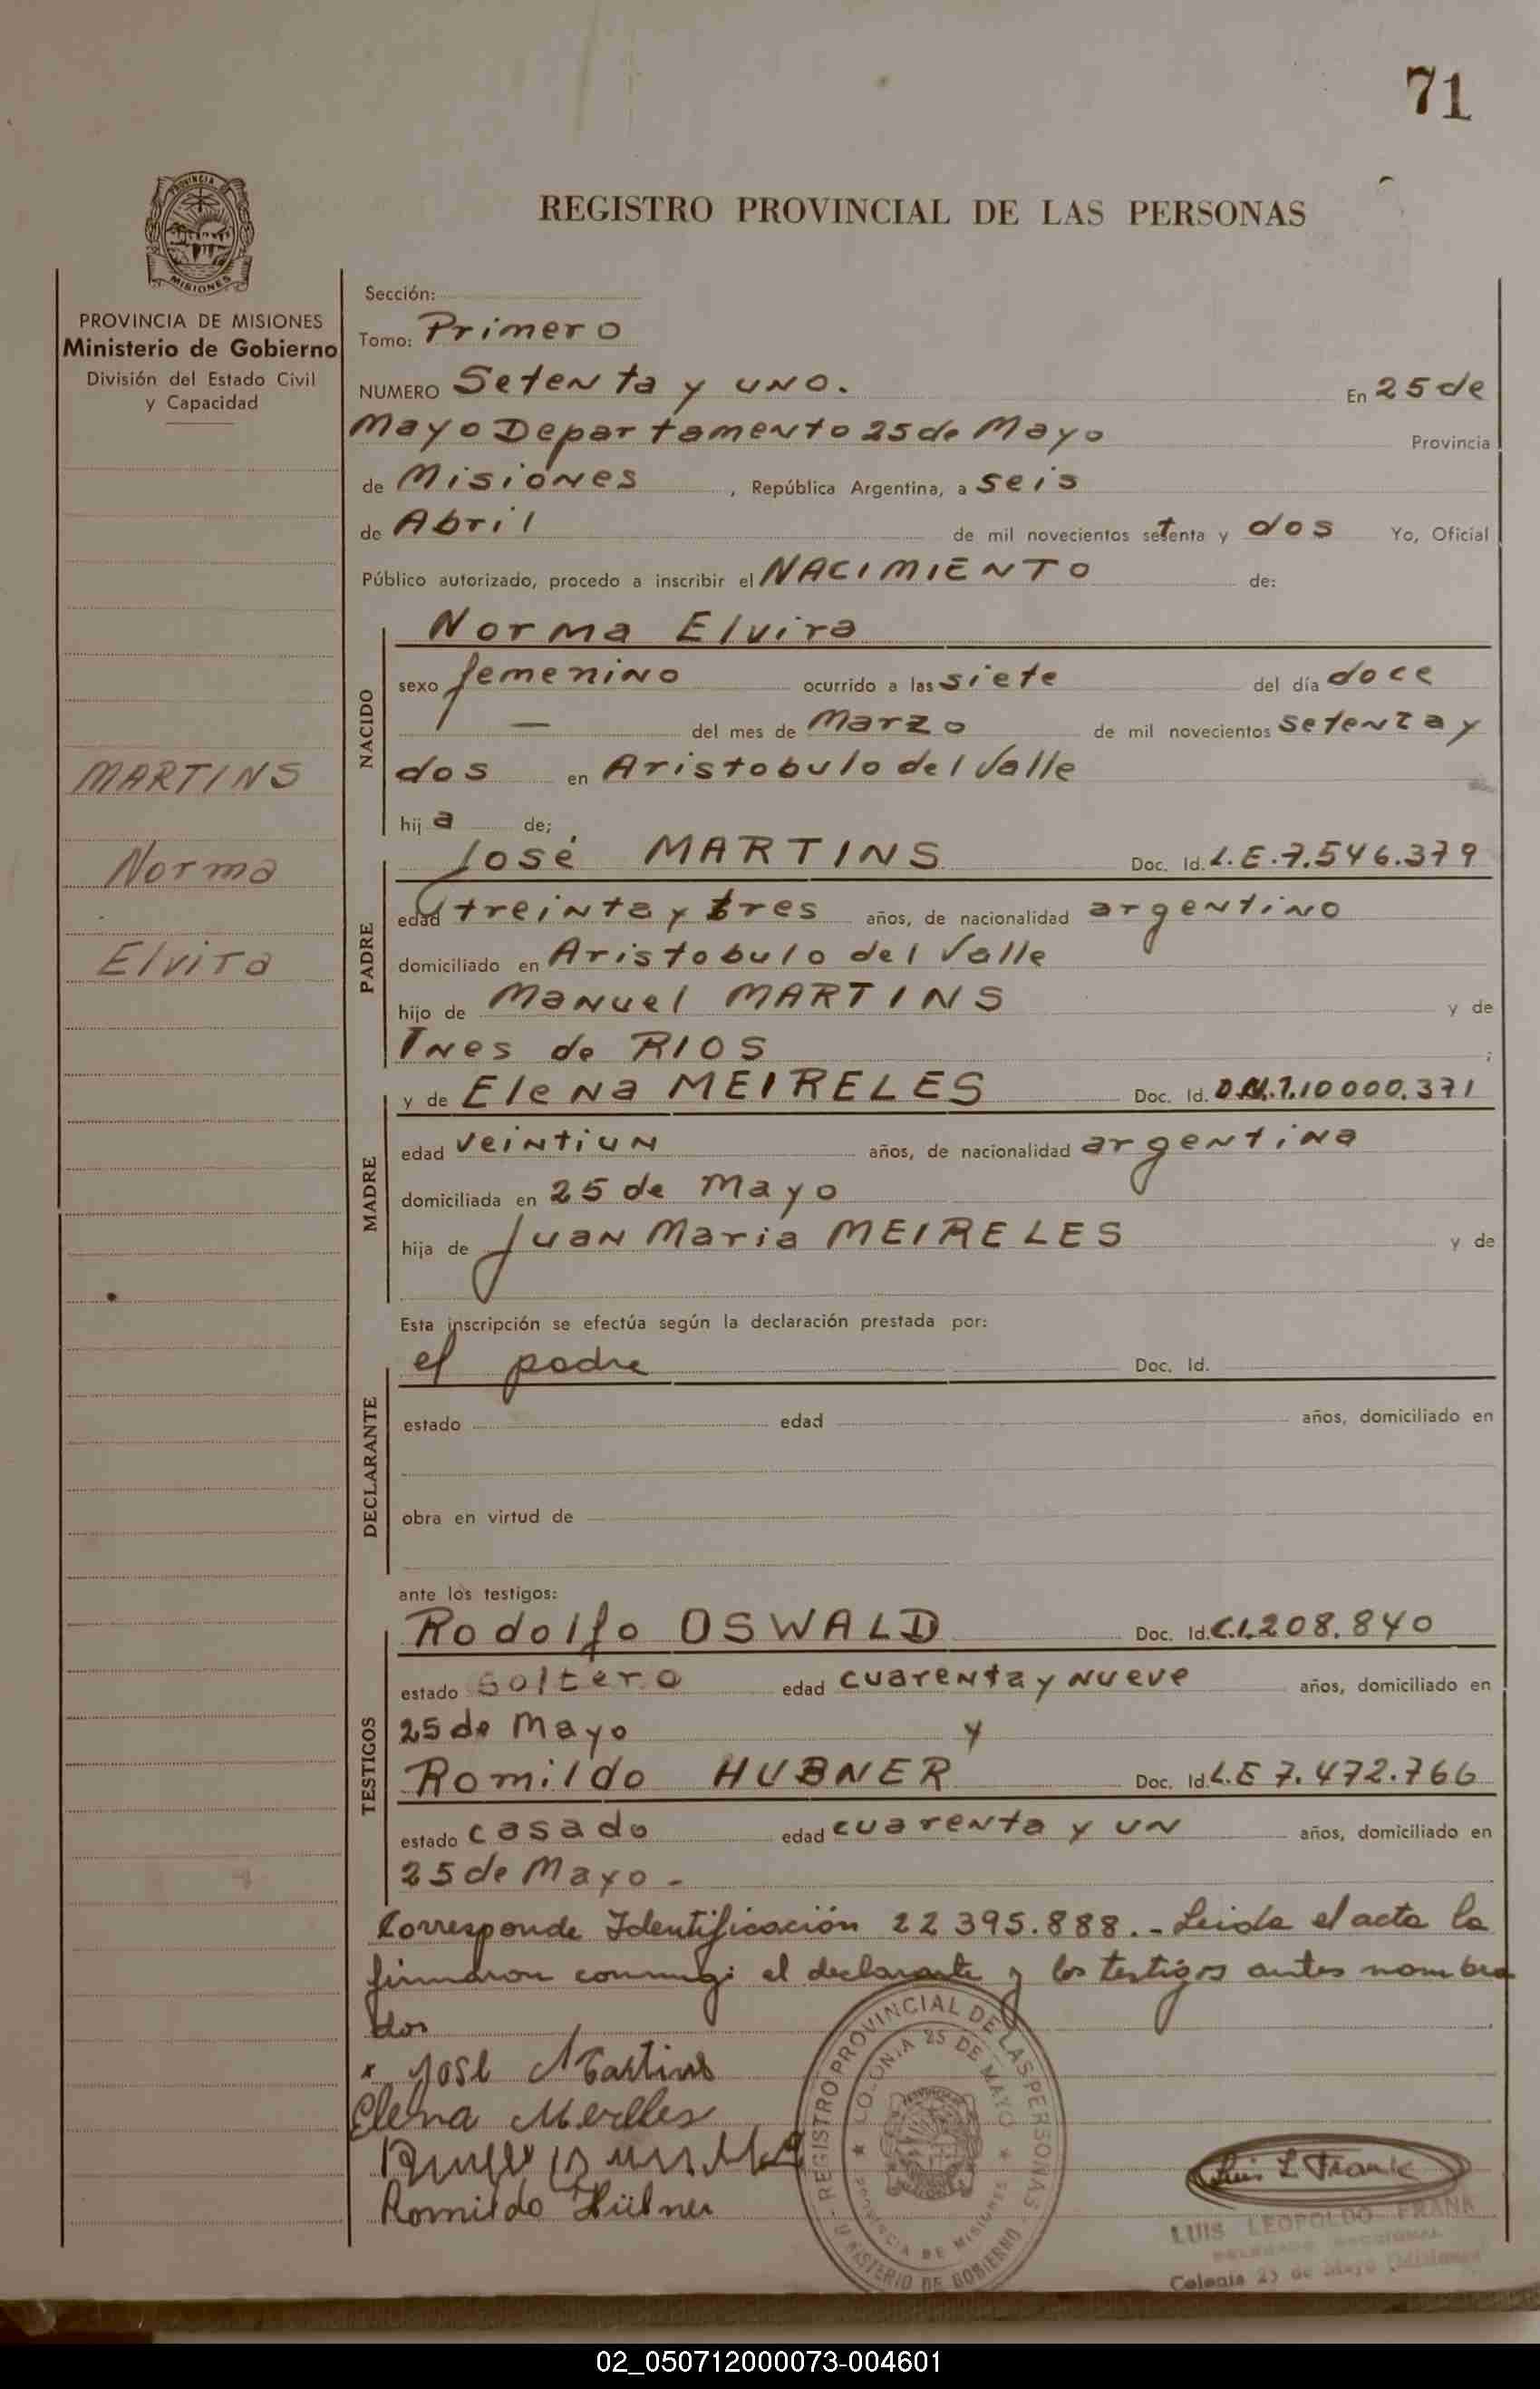 71
PROVINCIA
MISIONES
REGISTRO PROVINCIAL DE LAS PERSONAS
PROVINCIA DE MISIONES
Ministerio de Gobierno
División del Estado Civil
y Capacidad
MARTINS
Norma
Elvira
Sección:
Tomo: Primero
NUMERO Setenta y uno. En 25 de
Mayo Departamento 25 de Mayo Provincia
de Misiones, República Argentina, a seis
de Abril de mil novecientos setenta y dos Yo, Oficial
Público autorizado, procedo a inscribir el NACIMIENTO de:
NACIDO
Norma Elvira
sexo femenino ocurrido a las siete del día doce
— del mes de Marzo de mil novecientos setenta y
dos en Aristobulo del Valle
hij a de;
PADRE
José MARTINS Doc. Id. L.E.7.546.379
edad treinta y tres años, de nacionalidad argentino
domiciliado en Aristobulo del Valle
hijo de Manuel MARTINS y de
Ines de RIOS ;
MADRE
y de Elena MEIRELES Doc. Id. D.N.I.10000.371
edad veintiun años, de nacionalidad argentina
domiciliada en 25 de Mayo
hija de Juan Maria MEIRELES y de
Esta inscripción se efectúa según la declaración prestada por:
DECLARANTE
el padre Doc. Id.
estado edad años, domiciliado en
obra en virtud de
ante los testigos:
TESTIGOS
Rodolfo OSWALD Doc. Id. C.I.208.840
estado soltero edad cuarenta y nueve años, domiciliado en
25 de Mayo y
Romildo HUBNER Doc. Id. L.E 7.472.766
estado casado edad cuarenta y un años, domiciliado en
25 de Mayo -
Corresponde Identificación 22395.888.- Leida el acta la
firmaron conmigo el declarante y los testigos antes nombra
dos
x José Martins
Elena Merlles
Romildo Hübner
REGISTRO PROVINCIAL DE LAS PERSONAS
MINISTERIO DE GOBIERNO
COLONIA 25 DE MAYO
PROVINCIA DE MISIONES
Luis L Frank
LUIS LEOPOLDO FRANK
DELEGADO SECCIONAL
Colonia 25 de Mayo (Misiones)
02_050712000073-004601